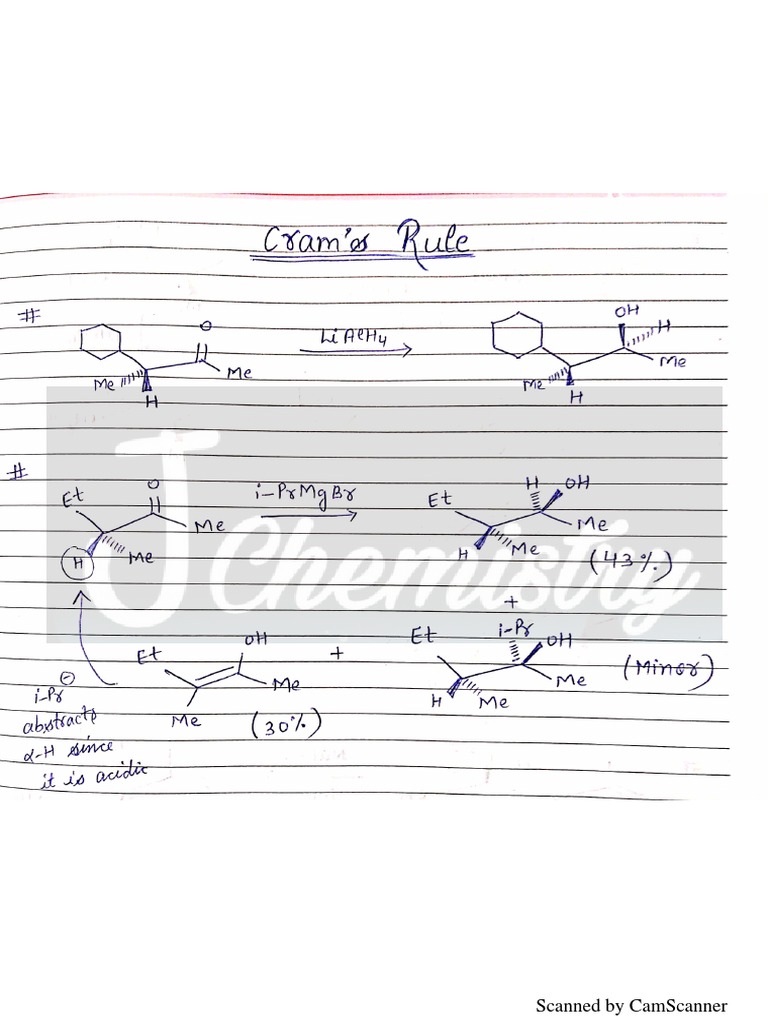 Cram's Rule
#
O
LiAlH4
OH
H
Me
Me
H
Me
Me
H
#
Et
O
i-PrMgBr
Et
H
OH
Me
Me
H
Me
H
Me
(43%)
J Chemistry
+
Et
OH
+
Et
i-Pr
OH
Me
Me
(Minor)
i-Pr⊖
Me
(30%)
H
Me
abstracts
α-H since
it is acidic
Scanned by CamScanner